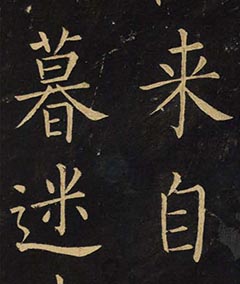 来自
暮迷